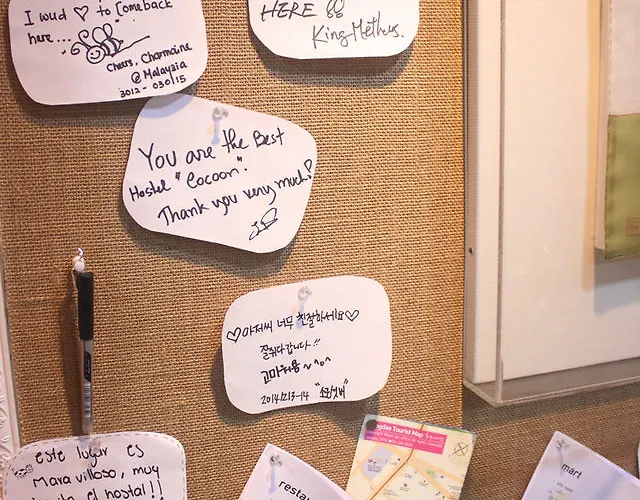 I wud ♡ to Comeback
here...
Cheers, Charmaine
@Malaysia
3012 - 030115
HERE
King-Methus.
You are the Best
Hostel "Cocoon".
Thank you very much!
♡아저씨 너무 친절하세요♡
잘쉬다갑니다!!
고마워용~^o^
2014.12.13-14
este lugar es
Maravilloso, muy
el hostal!!
Tourist Map
mart